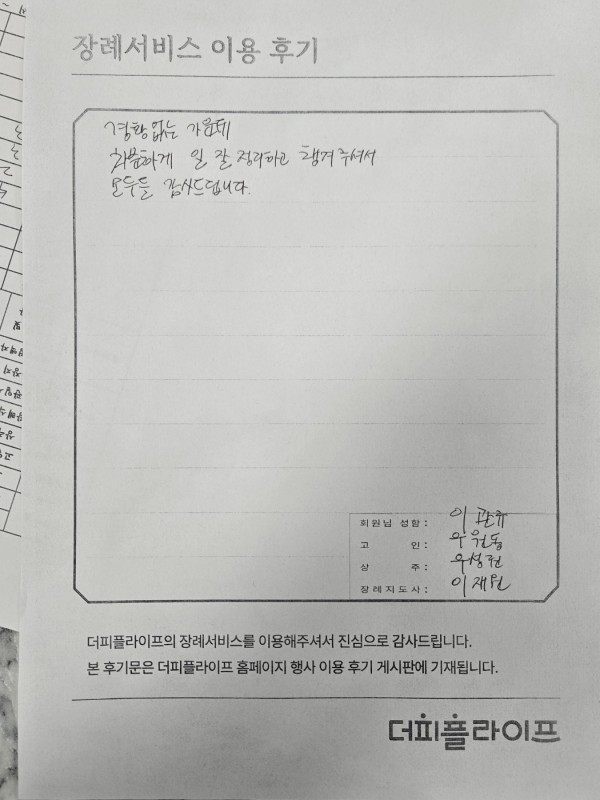 장례서비스 이용 후기
경황없는 가운데
차분하게 일 잘 정리하고 챙겨주셔서
모두들 감사드립니다.
회원님 성함: 이관규
고 인: 우원동
상 주: 우성현
장례지도사: 이재원
더피플라이프의 장례서비스를 이용해주셔서 진심으로 감사드립니다.
본 후기문은 더피플라이프 홈페이지 행사 이용 후기 게시판에 기재됩니다.
더피플라이프